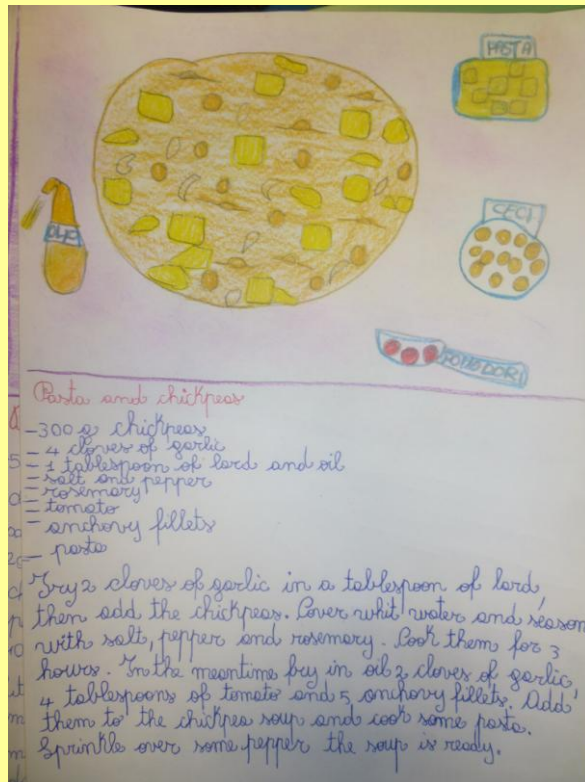 PASTA
OLIO
CECI
POMODORI
Pasta and chickpeas
-300 g chickpeas
- 4 cloves of garlic
- 1 tablespoon of lard and oil
- salt and pepper
- rosemary
- tomato
- anchovy fillets
- pasta
Fry 2 cloves of garlic in a tablespoon of lard,
then add the chickpeas. Cover whit water and season
with salt, pepper and rosemary. Cook them for 3
hours. In the meantime fry in oil 2 cloves of garlic,
4 tablespoons of tomato and 5 anchovy fillets. Add
them to the chickpea soup and cook some pasta.
Sprinkle over some pepper the soup is ready.